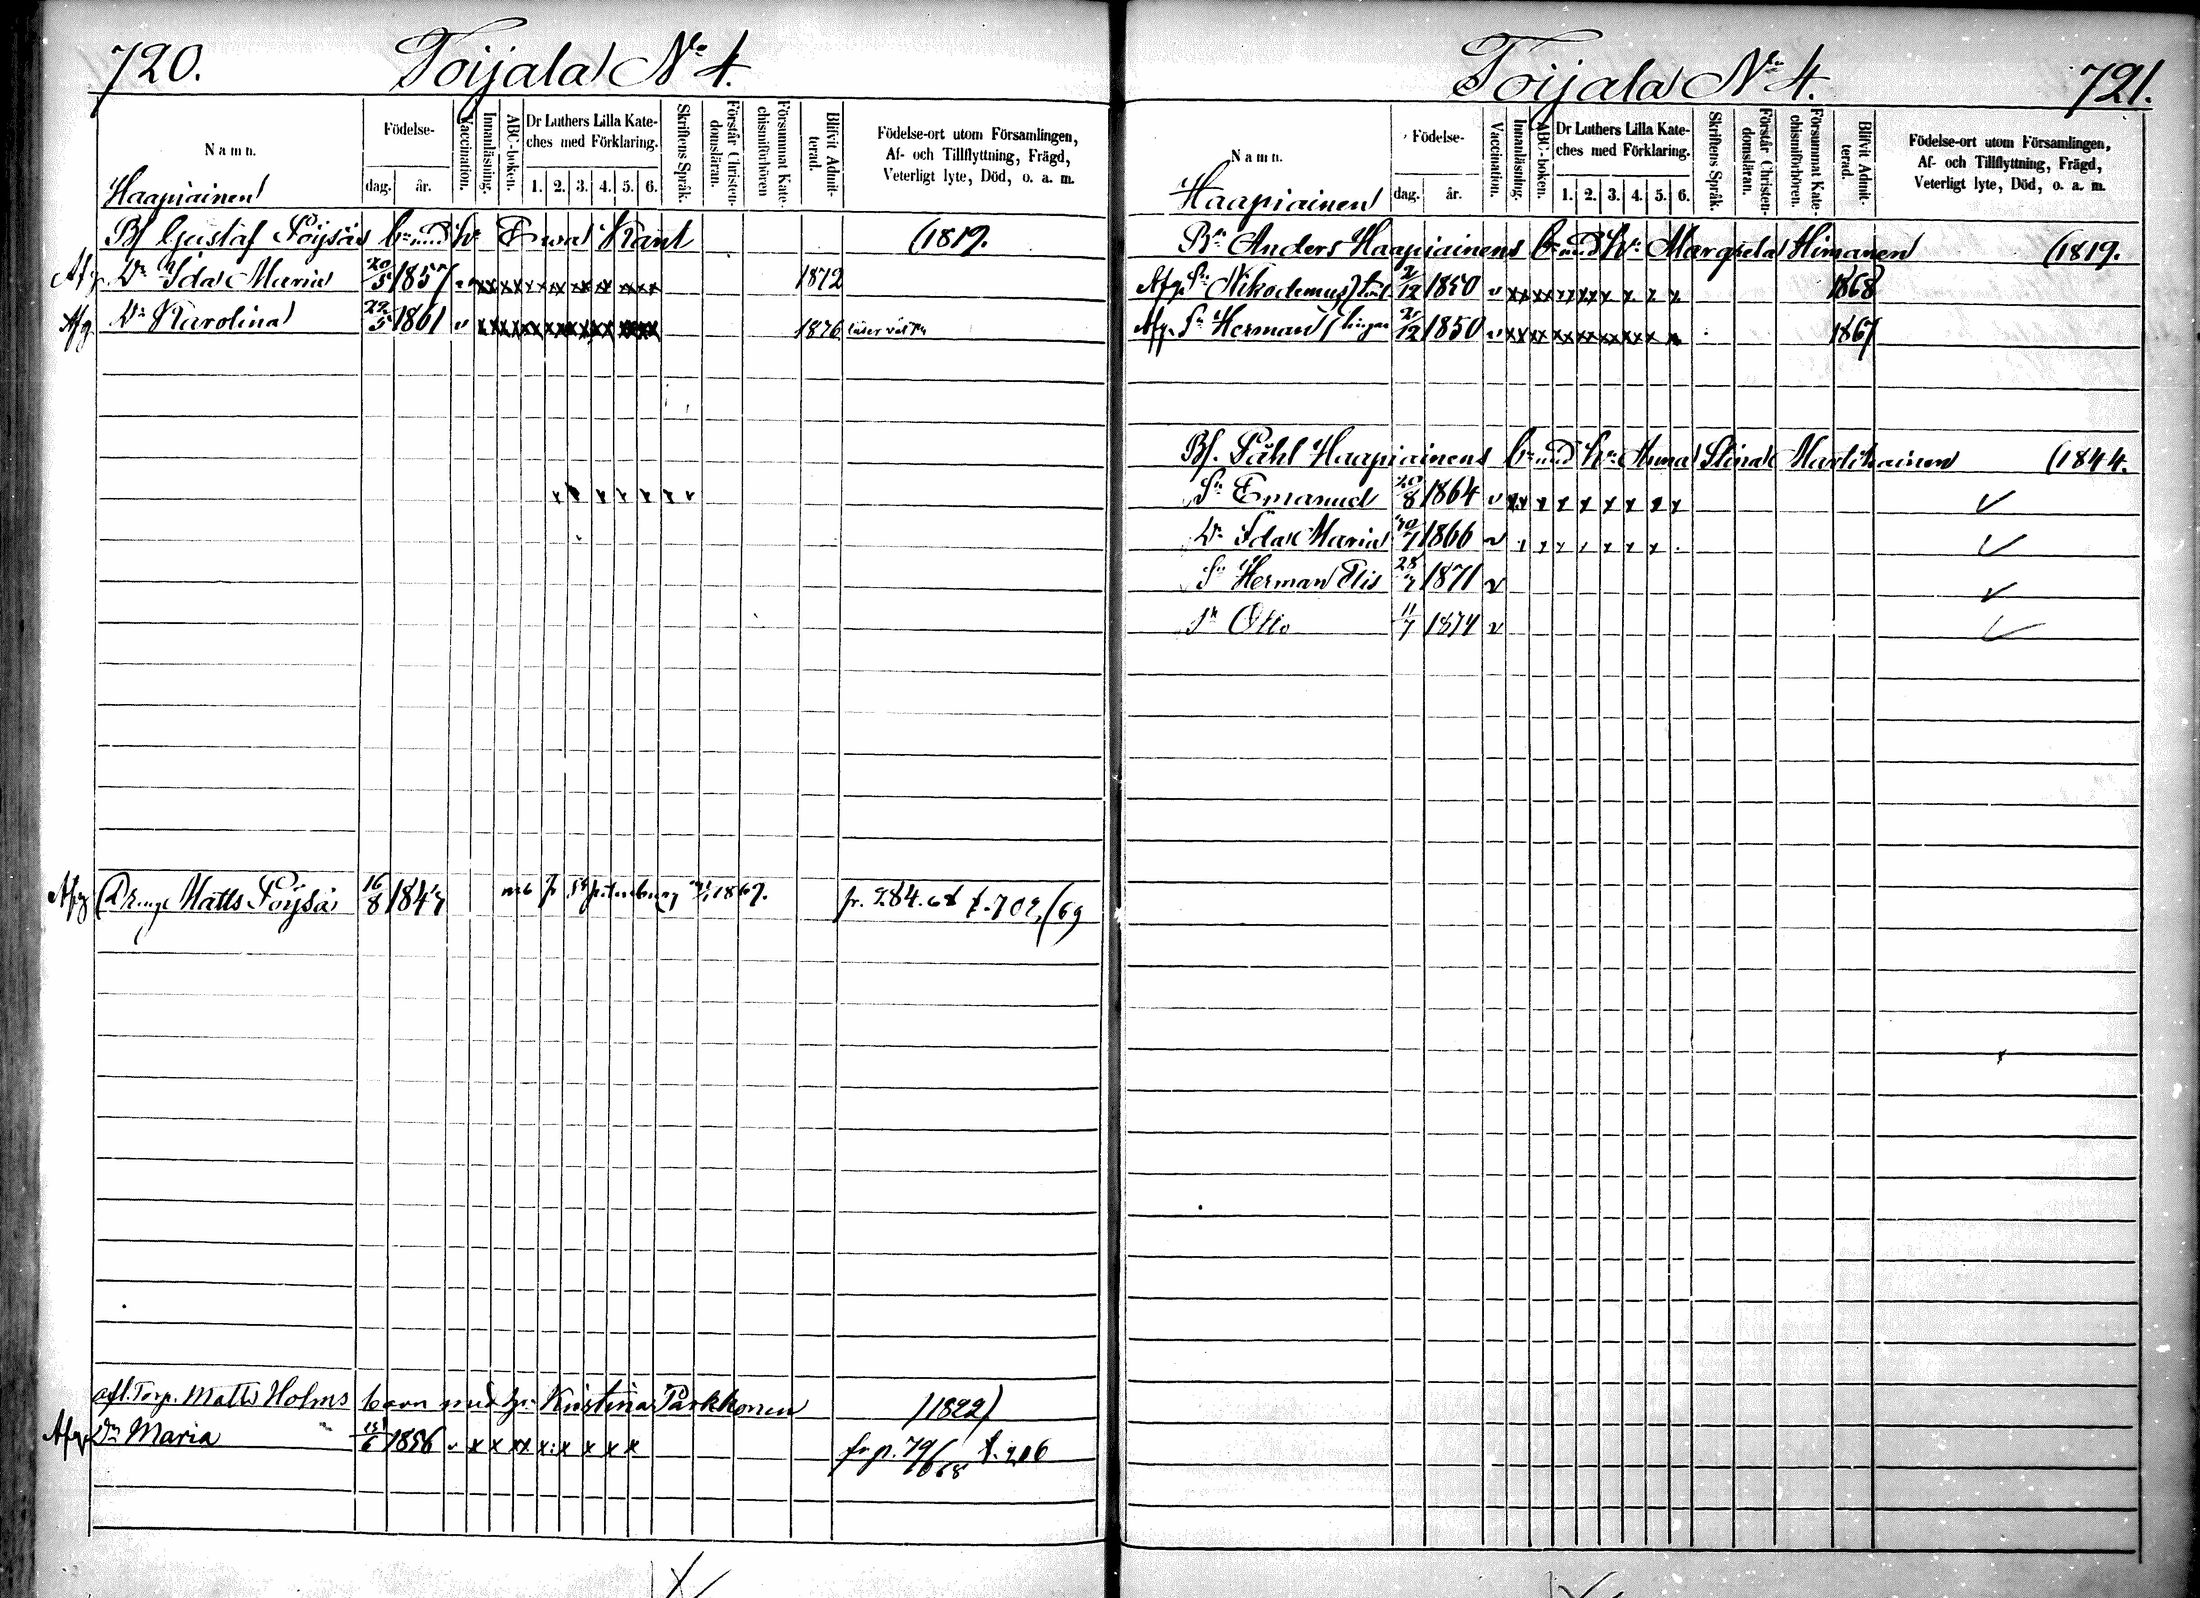 720. Toijala No 4.
Namn.
Födelse-
dag. år.
Vaccination.
Innanläsning.
ABC-boken.
Dr Luthers Lilla Kate-
ches med Förklaring.
1. 2. 3. 4. 5. 6.
Skriftens Språk.
Förstår Christen-
domsläran.
Försummat Kate-
chismiförhören
Blifvit Admit-
terad.
Födelse-ort utom Församlingen,
Af- och Tillflyttning, Frägd,
Veterligt lyte, Död, o. a. m.
Haapiainen
Bf Gustaf Pöysäs bn med hu Ewa Kant (1819.
Afg. Dr Ida Maria 20/5 1857 v xx xx xx xx xx xx xx 1872
Afg. Dr Karolina 22/5 1861 v xx xx xx xx xx xx xx 1876
x x x x x x v
Afg (Dreng Matts Pöysä 16/8 1847 1867. fr. 284. 68 t. 702/69
afl. Torp. Matts Holms barn med hu Kristina Parkkonen (1822)
Afg. Dr Maria 1856 v x x xx x x x x x fr p. 79/68 t. 206
Toijala No 4. 721.
Namn.
Födelse-
dag. år.
Vaccination.
Innanläsning.
ABC-boken.
Dr Luthers Lilla Kate-
ches med Förklaring.
1. 2. 3. 4. 5. 6.
Skriftens Språk.
Förstår Christen-
domsläran.
Försummat Kate-
chismiförhören.
Blifvit Admit-
terad.
Födelse-ort utom Församlingen,
Af- och Tillflyttning, Frägd,
Veterligt lyte, Död, o. a. m.
Haapiainen
Bn Anders Haapiainens bn med hu Margreta Himanen (1819.
Afg. Sn Nikodemus 2/12 1850 v xx xx xx xx x x x 1868
Afg. Sn Herman 2/12 1850 v xx xx xx xx xx xx x x 1867
Bf. Påhl Haapiainens bn med hu Anna Stina Martikainen (1844.
Sn Emanuel 20/8 1864 v xx x x x x x x x ✓
Dr Ida Maria 1866 v x x x x x x ✓
Sn Herman Elis 28/7 1871 v ✓
Sn Otto 11/7 1874 v ✓